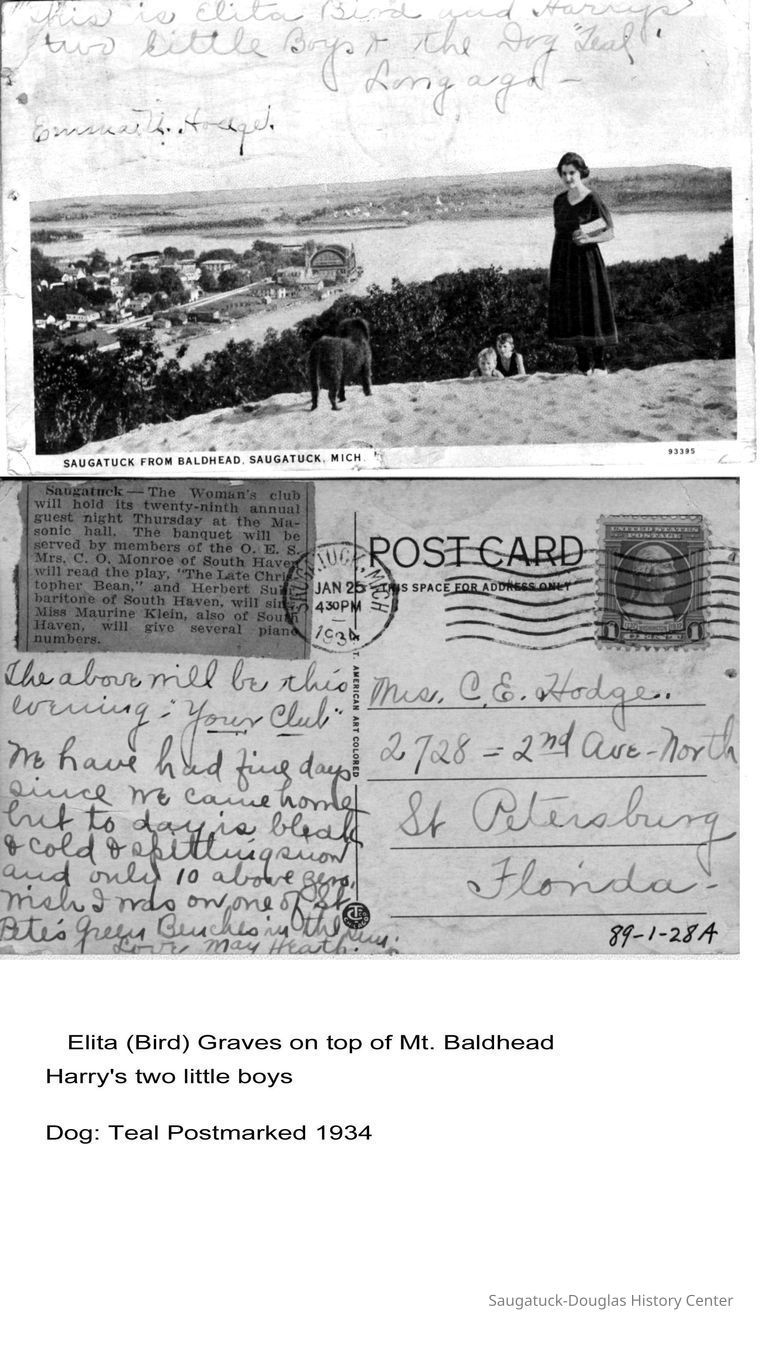 This is Elita Bird and Harry's
two little Boys & the Dog "Teal"
Long ago -
Emma N. Hodge.
SAUGATUCK FROM BALDHEAD, SAUGATUCK, MICH.
93395
Saugatuck — The Woman's club
will hold its twenty-ninth annual
guest night Thursday at the Ma-
sonic hall. The banquet will be
served by members of the O. E. S.
Mrs. C. O. Monroe of South Haven
will read the play, "The Late Chri
topher Bean," and Herbert Su
baritone of South Haven, will sin
Miss Maurine Klein, also of South
Haven, will give several piano
numbers.
SAUGATUCK, MICH
JAN 25
430PM
1934
POST CARD
THIS SPACE FOR ADDRESS ONLY
UNITED STATES
POSTAGE
1 1
C.T. AMERICAN ART COLORED
The above will be this
evening - "Your Club"
We have had fine days
since we came home
but to day is bleak
& cold & spitting snow
and only 10 above zero.
Wish I was on one of St.
Pete's Green Benches in the sun.
Love May Heath.
Mrs. C. E. Hodge.
2728 = 2nd Ave - North
St Petersburg
Florida -
89-1-28A
Elita (Bird) Graves on top of Mt. Baldhead
Harry's two little boys
Dog: Teal Postmarked 1934
Saugatuck-Douglas History Center